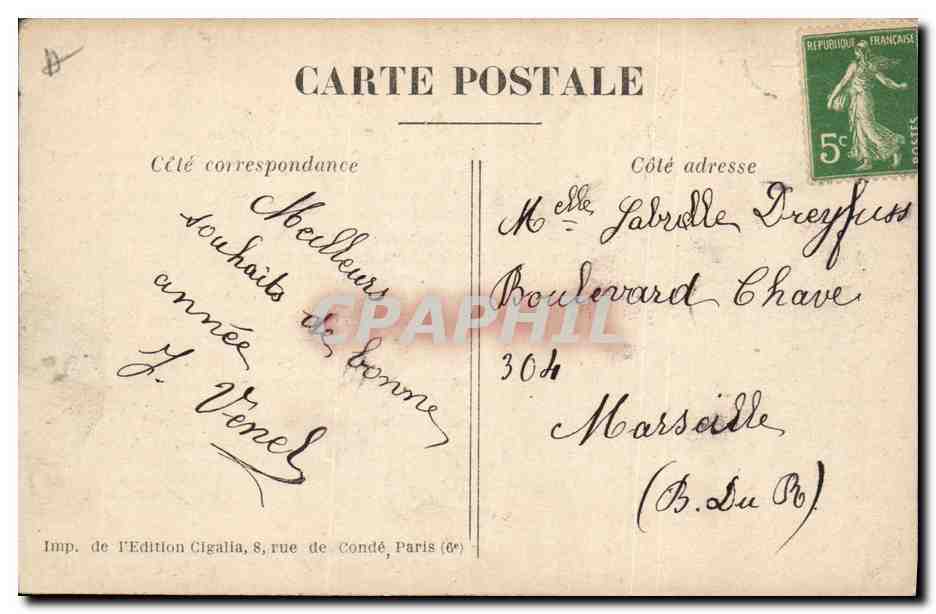 CARTE POSTALE
REPUBLIQUE FRANÇAISE
5c
POSTES
Côté correspondance
Côté adresse
Meilleurs
souhaits de bonne
année
J. Venel
Melle Gabrielle Dreyfuss
Boulevard Chave
304
Marseille
(B. Du R)
CPAPHIL
Imp. de l'Edition Cigalia, 8, rue de Condé, Paris (6e)